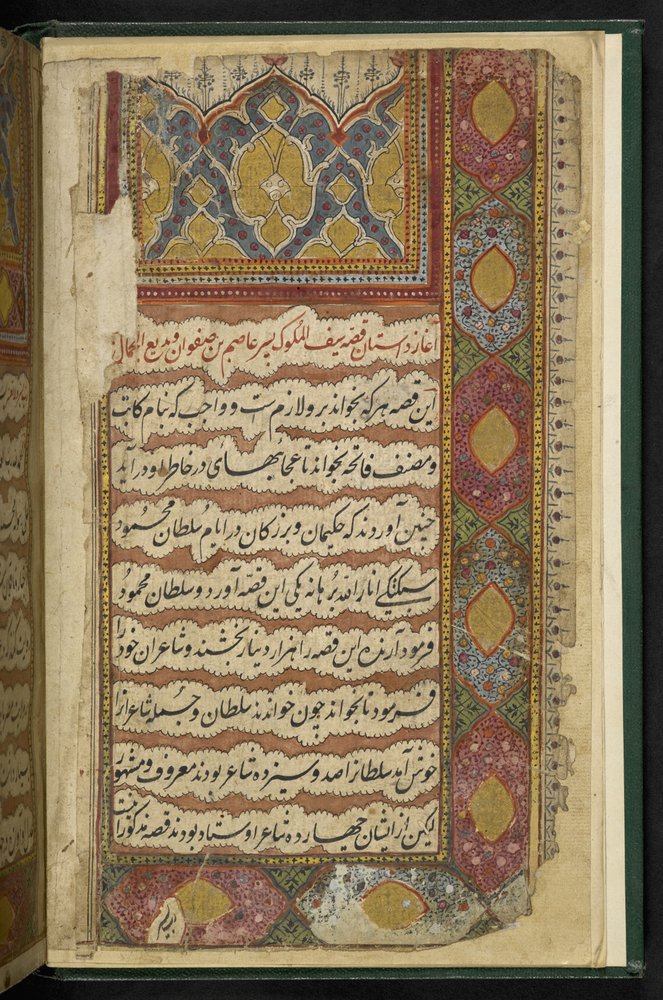 آغاز داستان قصه سیف الملوک پسر عاصم بن صفوان و بدیع الجمال
این قصه هر که بخواند برو لازمست و واجب که بنام کاتب
و مصنف فاتحه بخواند تا عجابهای در خاطر او در آید
چنین آوردند که حکیمان و بزرکان در ایام سلطان محمود
سبکتکی انار الله برهانه یکی این قصه آورد و سلطان محمود
فرمود آرنده این قصه را هزار دینار بخشند و شاعران خود را
فرمود تا بخواند چون خواندند سلطان و جمله شاعرانرا
خوش آمد سلطانرا صد و سیزده شاعر بودند معروف و مشهور
لیکن از ایشان چهارده شاعر اوستاد بودند قصه مذکور